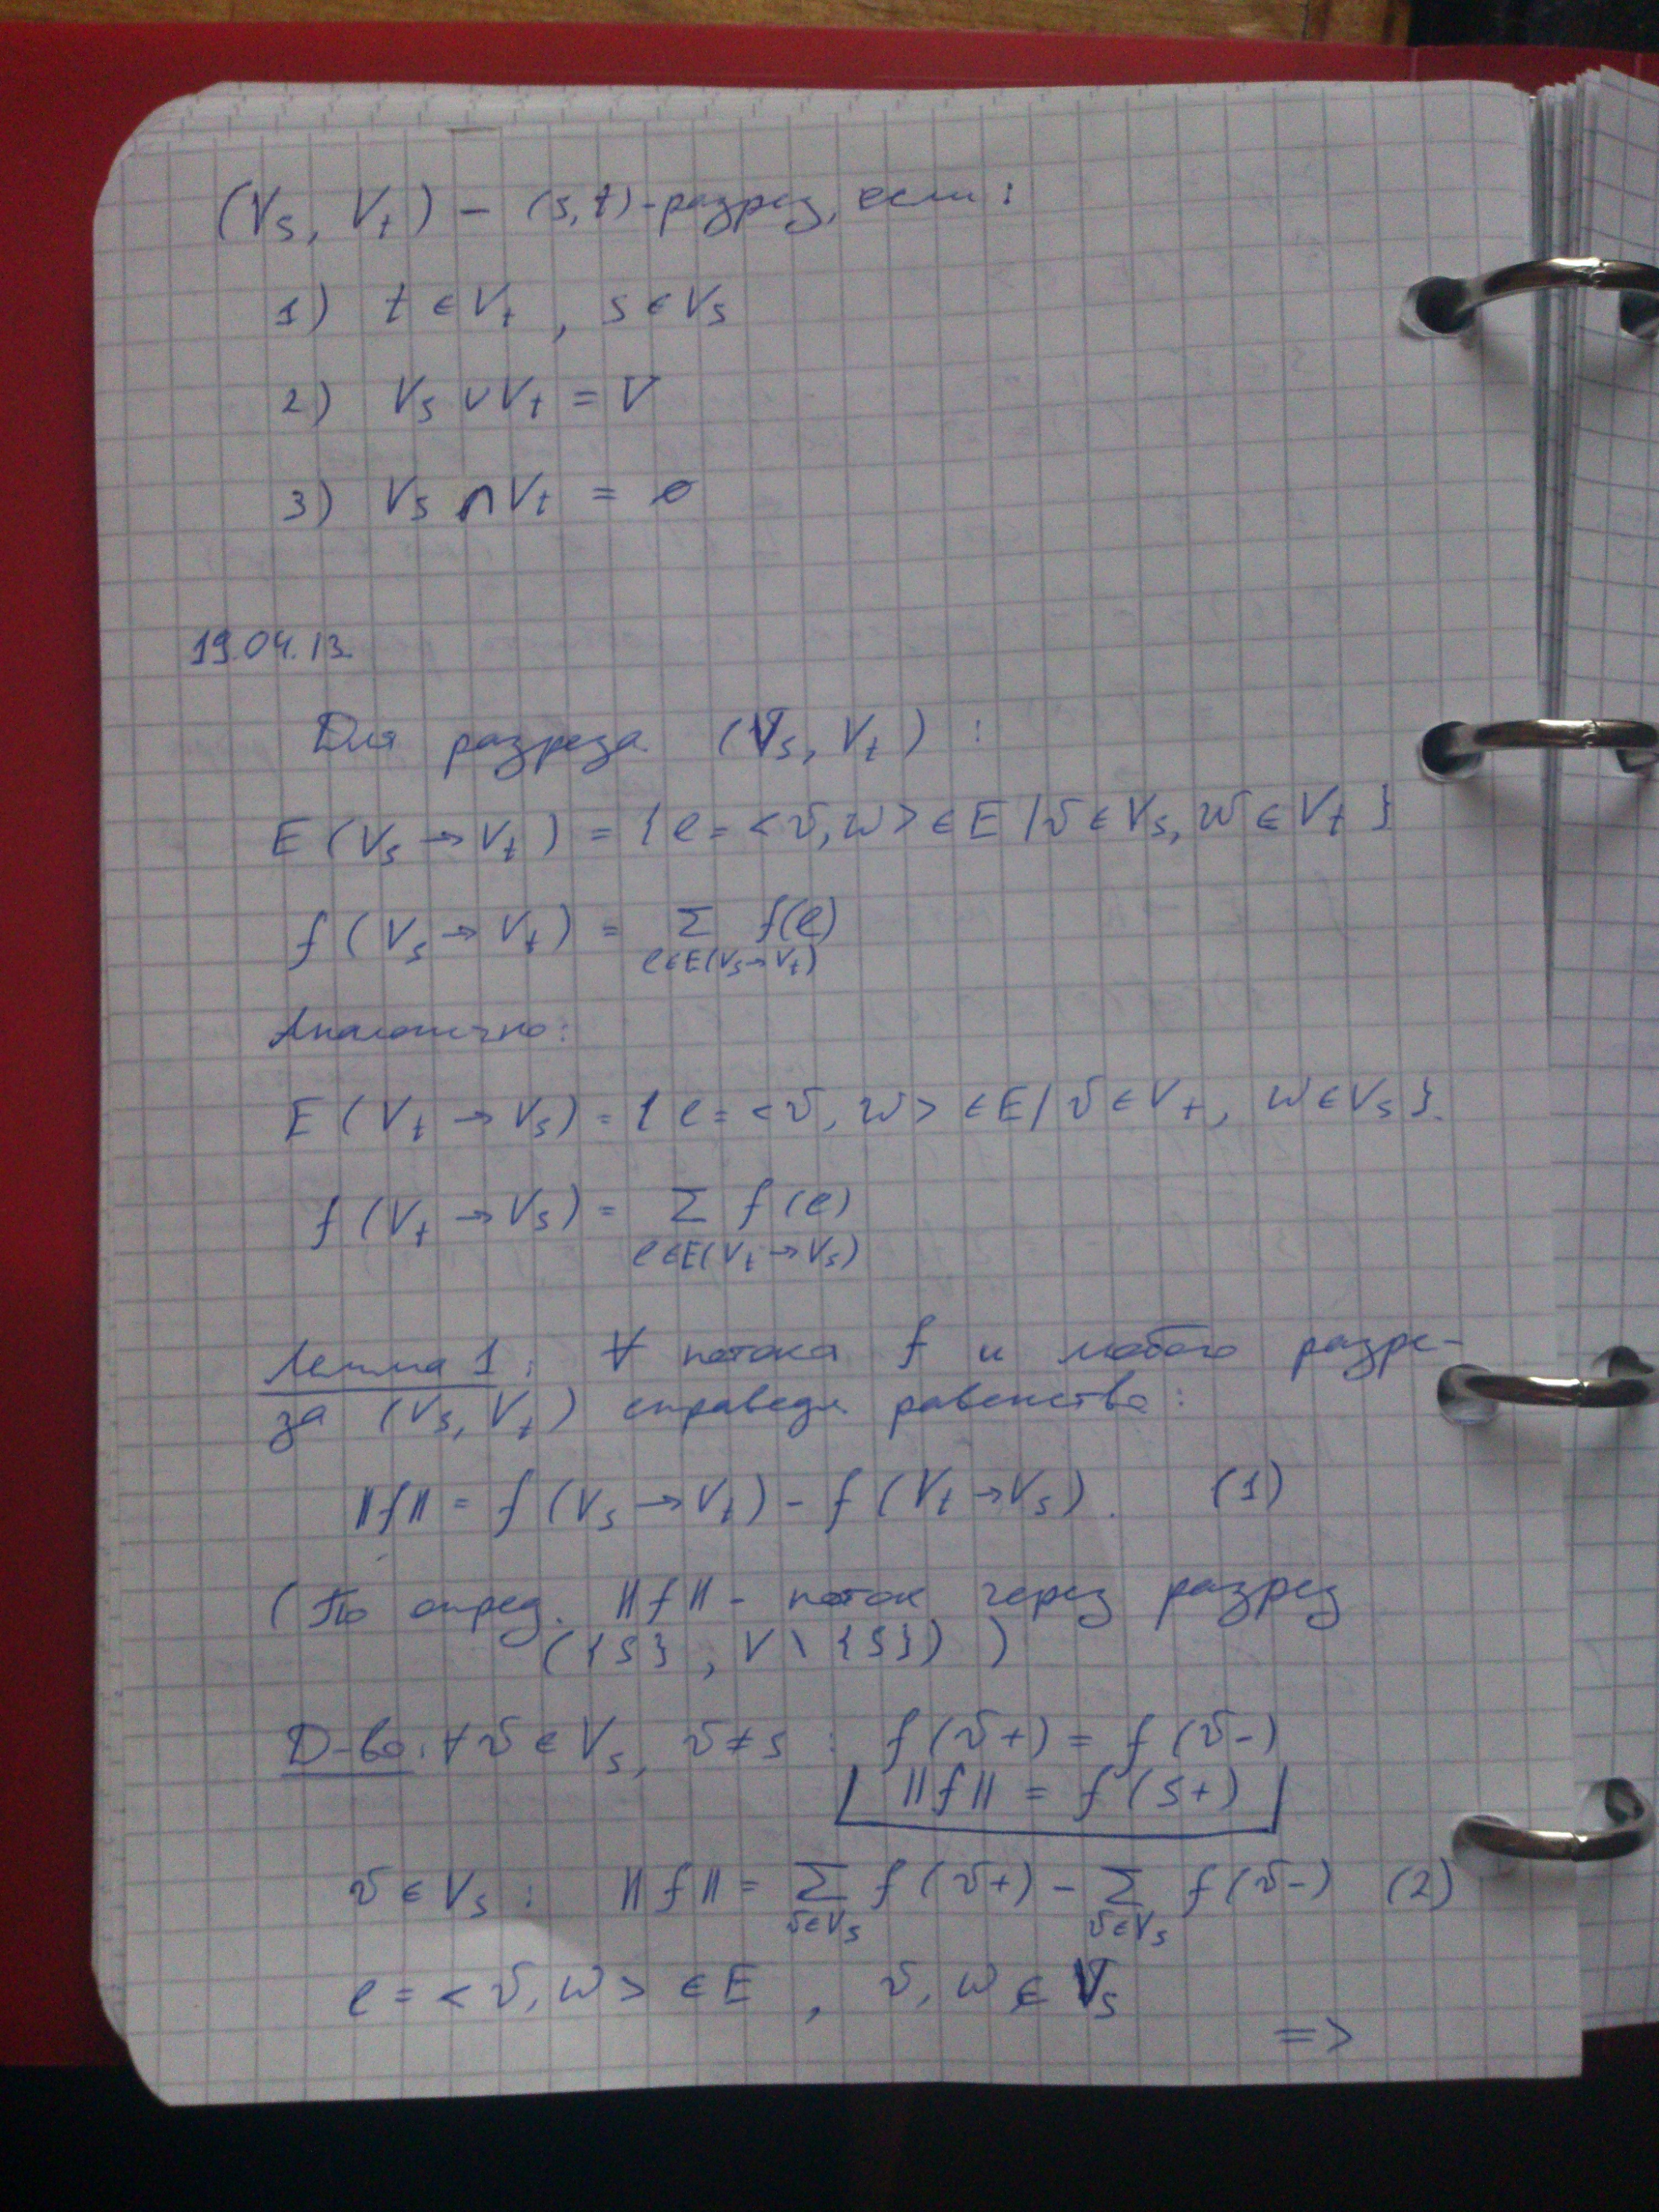 (Vs, Vt) – (s,t)-разрез, если:
1) t ∈ Vt , s ∈ Vs
2) Vs ∪ Vt = V
3) Vs ∩ Vt = ∅
19.04.13
Для разреза (Vs, Vt) :
E (Vs → Vt) = { e = <v, w> ∈ E | v ∈ Vs, w ∈ Vt }
f (Vs → Vt) = Σ f(e)
e∈E(Vs→Vt)
Аналогично:
E (Vt → Vs) = { e = <v, w> ∈ E | v ∈ Vt, w ∈ Vs }.
f (Vt → Vs) = Σ f (e)
e∈E(Vt→Vs)
Лемма 1: ∀ потока f и любого разре-
за (Vs, Vt) справедл. равенство:
||f|| = f (Vs → Vt) – f (Vt → Vs). (1)
(По опред. ||f|| – поток через разрез
({s}, V \ {s}) )
Д-во: ∀ v ∈ Vs, v ≠ s : f (v+) = f (v-)
||f|| = f (s+)
v ∈ Vs : ||f|| = Σ f (v+) – Σ f (v-) (2)
v∈Vs v∈Vs
e = <v, w> ∈ E , v, w ∈ Vs
=>